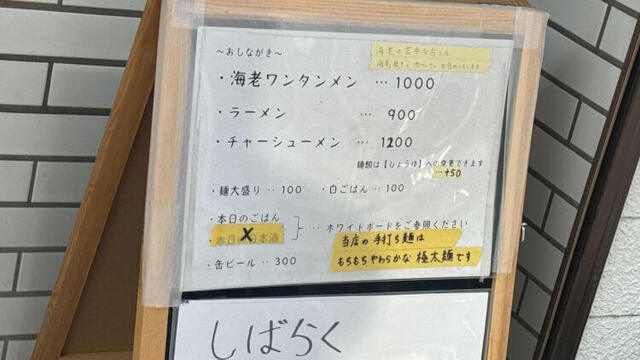 ～おしながき～
海老の苦手な方には
・海老ワンタンメン … 1000
・ラーメン … 900
・チャーシューメン … 1200
麺類は【しょうゆ】への変更できます
…+50
・麺大盛り … 100 ・白ごはん … 100
・本日のごはん
・本日 日本酒
X
… ホワイトボードをご参照ください
・缶ビール … 300
当店の手打ち麺は
もちもちやわらかな極太麺です
しばらく